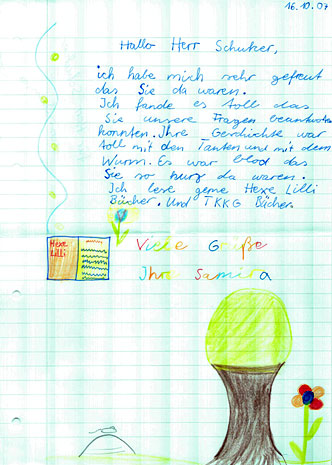 16.10.07
Hallo Herr Schuker,
ich habe mich sehr gefreut
das Sie da waren.
Ich fande es toll das
Sie unsere Fragen beantworten
konnten. Ihre Geschichte war
toll mit den Tanten und mit dem
Wurm. Es war blod das
Sie so kurz da waren.
Ich lese gerne Hexe Lilli
Bücher. Und TKKG Bücher.
Hexe
Lilli
Viele Grüße
Ihre Samira